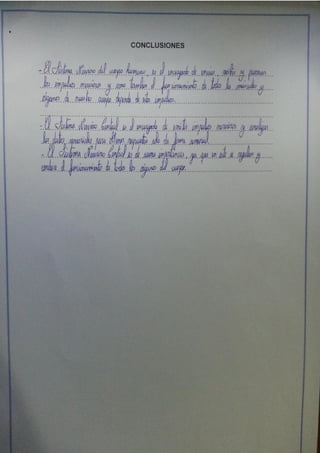 CONCLUSIONES
- El Sistema Nervioso del cuerpo humano, es el encargado de enviar, recibir y procesar
los impulsos nerviosos y como tambien el funcionamiento de todos los musculos y
órganos de nuestro cuerpo depende de estos impulsos.
- El Sistema Nervioso Central es el encargado de emitir impulsos nerviosos y analizar
los datos sensoriales para
- El Sistema Nervioso Central es de suma importancia, ya que en este se regulan y
el funcionamiento de todos los órganos del cuerpo.